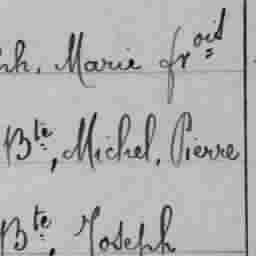 ph, Marie frois
Bte, Michel, Pierre
Bte, Joseph